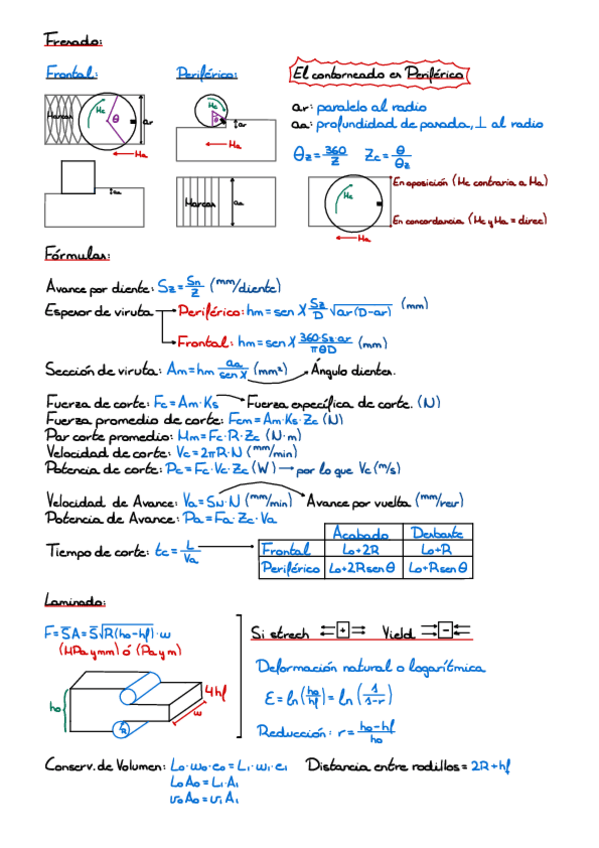 Fresado:
Frontal:
Periférico:
El contorneado es Periférico
Marcas
Mc
θ
ar
Ma
aa
Mc
θ
ar
Ma
Marcas
aa
ar: paralelo al radio
aa: profundidad de pasada, ⊥ al radio
θz = 360/Z   Zc = θ/θz
Mc
Ma
En oposición (Mc contraria a Ma)
En concordancia (Mc y Ma = direc)
Fórmulas:
Avance por diente: Sz = Sn/Z (mm/diente)
Espesor de viruta → Periférico: hm = sen X Sz/D √ar(D-ar) (mm)
→ Frontal: hm = sen X 360·Sz·ar/πθD (mm)
Sección de viruta: Am = hm aa/sen X (mm²) Ángulo dientes.
Fuerza de corte: Fc = Am·Ks → Fuerza específica de corte. (N)
Fuerza promedio de corte: Fcm = Am·Ks·Zc (N)
Par corte promedio: Mm = Fc·R·Zc (N·m)
Velocidad de corte: Vc = 2πR·N (mm/min)
Potencia de corte: Pc = Fc·Vc·Zc (W) → por lo que Vc (m/s)
Velocidad de Avance: Va = SN·N (mm/min) Avance por vuelta (mm/rev)
Potencia de Avance: Pa = Fa·Zc·Va
Tiempo de corte: tc = L/Va →
Acabado Desbaste
Frontal Lo+2R Lo+R
Periférico Lo+2Rsenθ Lo+Rsenθ
Laminado:
F = S̄A = S̄√R(ho-hf)·w
(MPa y mm) ó (Pa y m)
ho
R
w
4hf
Si strech + Yield -
Deformación natural o logarítmica
ε = ln(ho/hf) = ln(1/1-r)
Reducción: r = ho-hf/ho
Conserv. de Volumen: Lo·wo·eo = L1·w1·e1 Distancia entre rodillos = 2R+hf
LoAo = L1·A1
voAo = v1A1